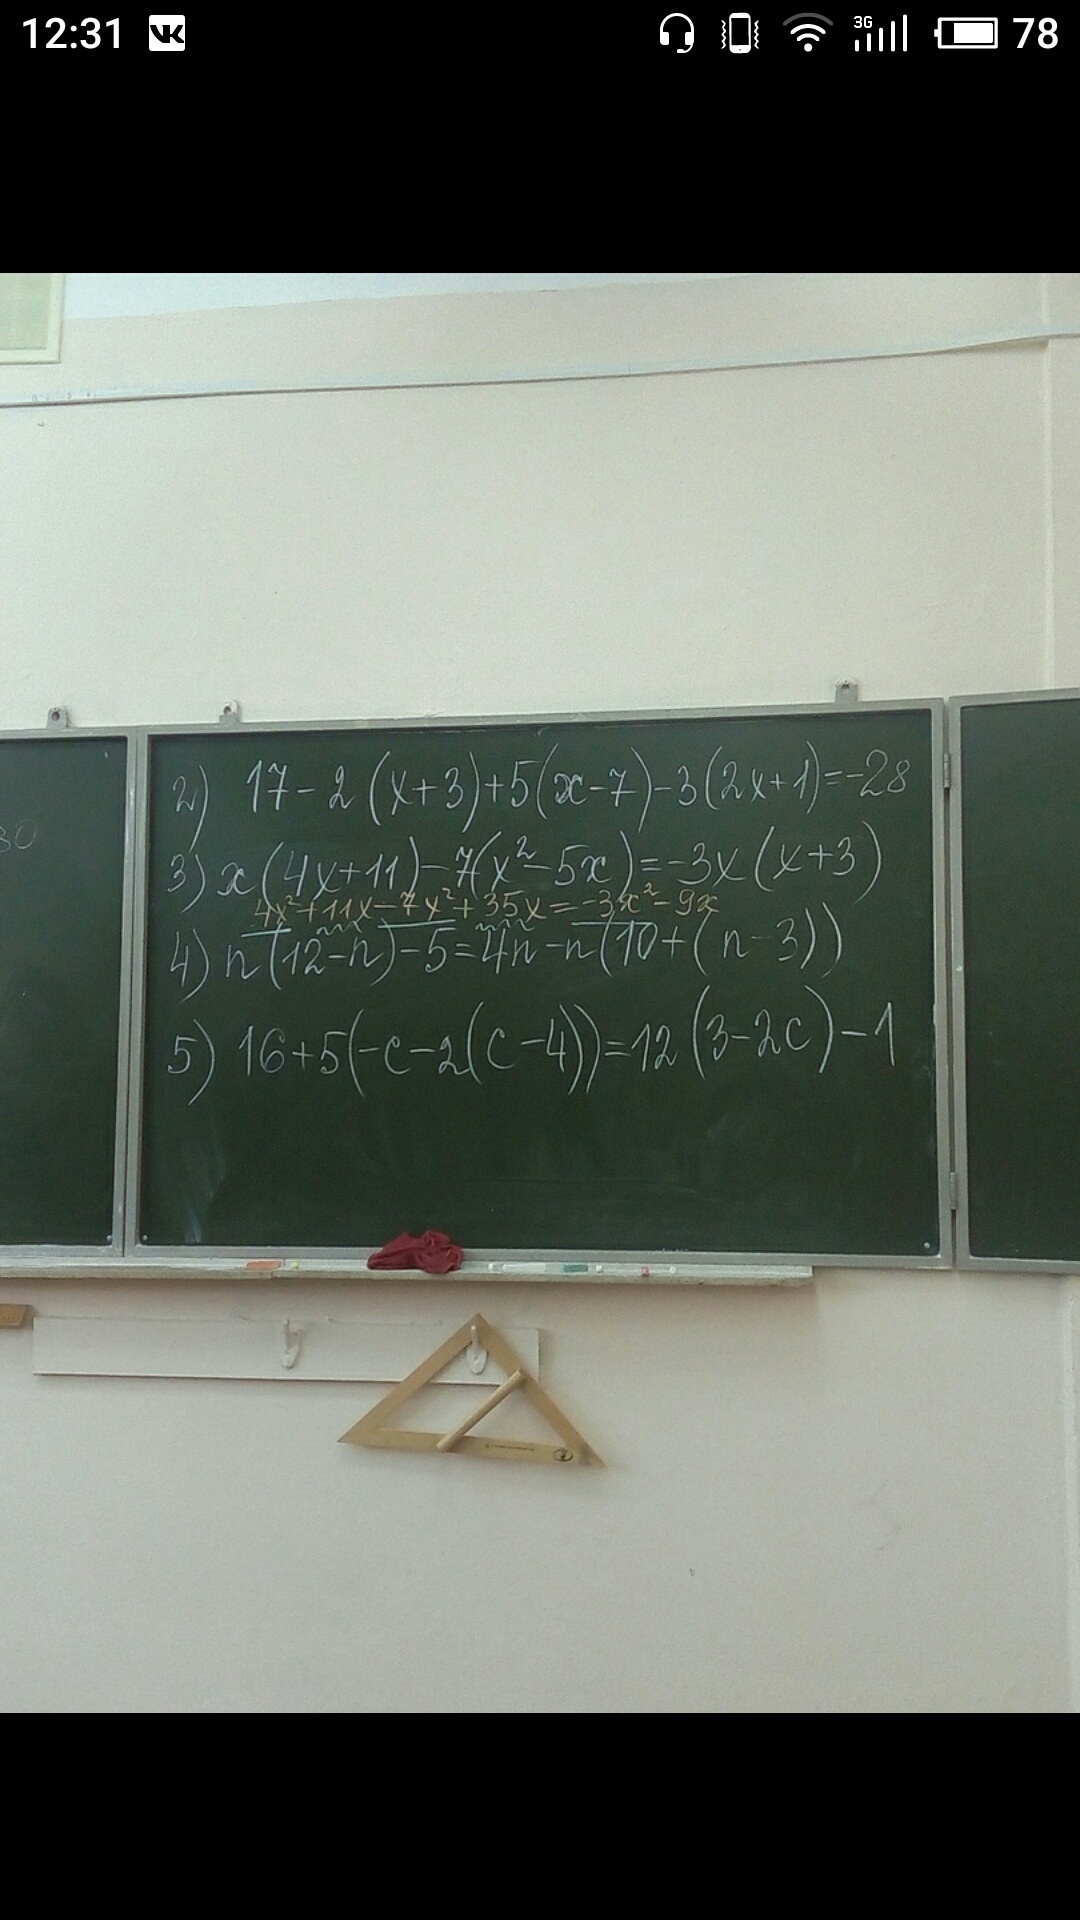 12:31 3G 78
30
2) 17-2(x+3)+5(x-7)-3(2x+1)=-28
3) x(4x+11)-7(x²-5x)=-3x(x+3)
4x²+11x-7x²+35x=-3x²-9x
4) n(12-n)-5=4n-n(10+(n-3))
5) 16+5(-c-2(c-4))=12(3-2c)-1